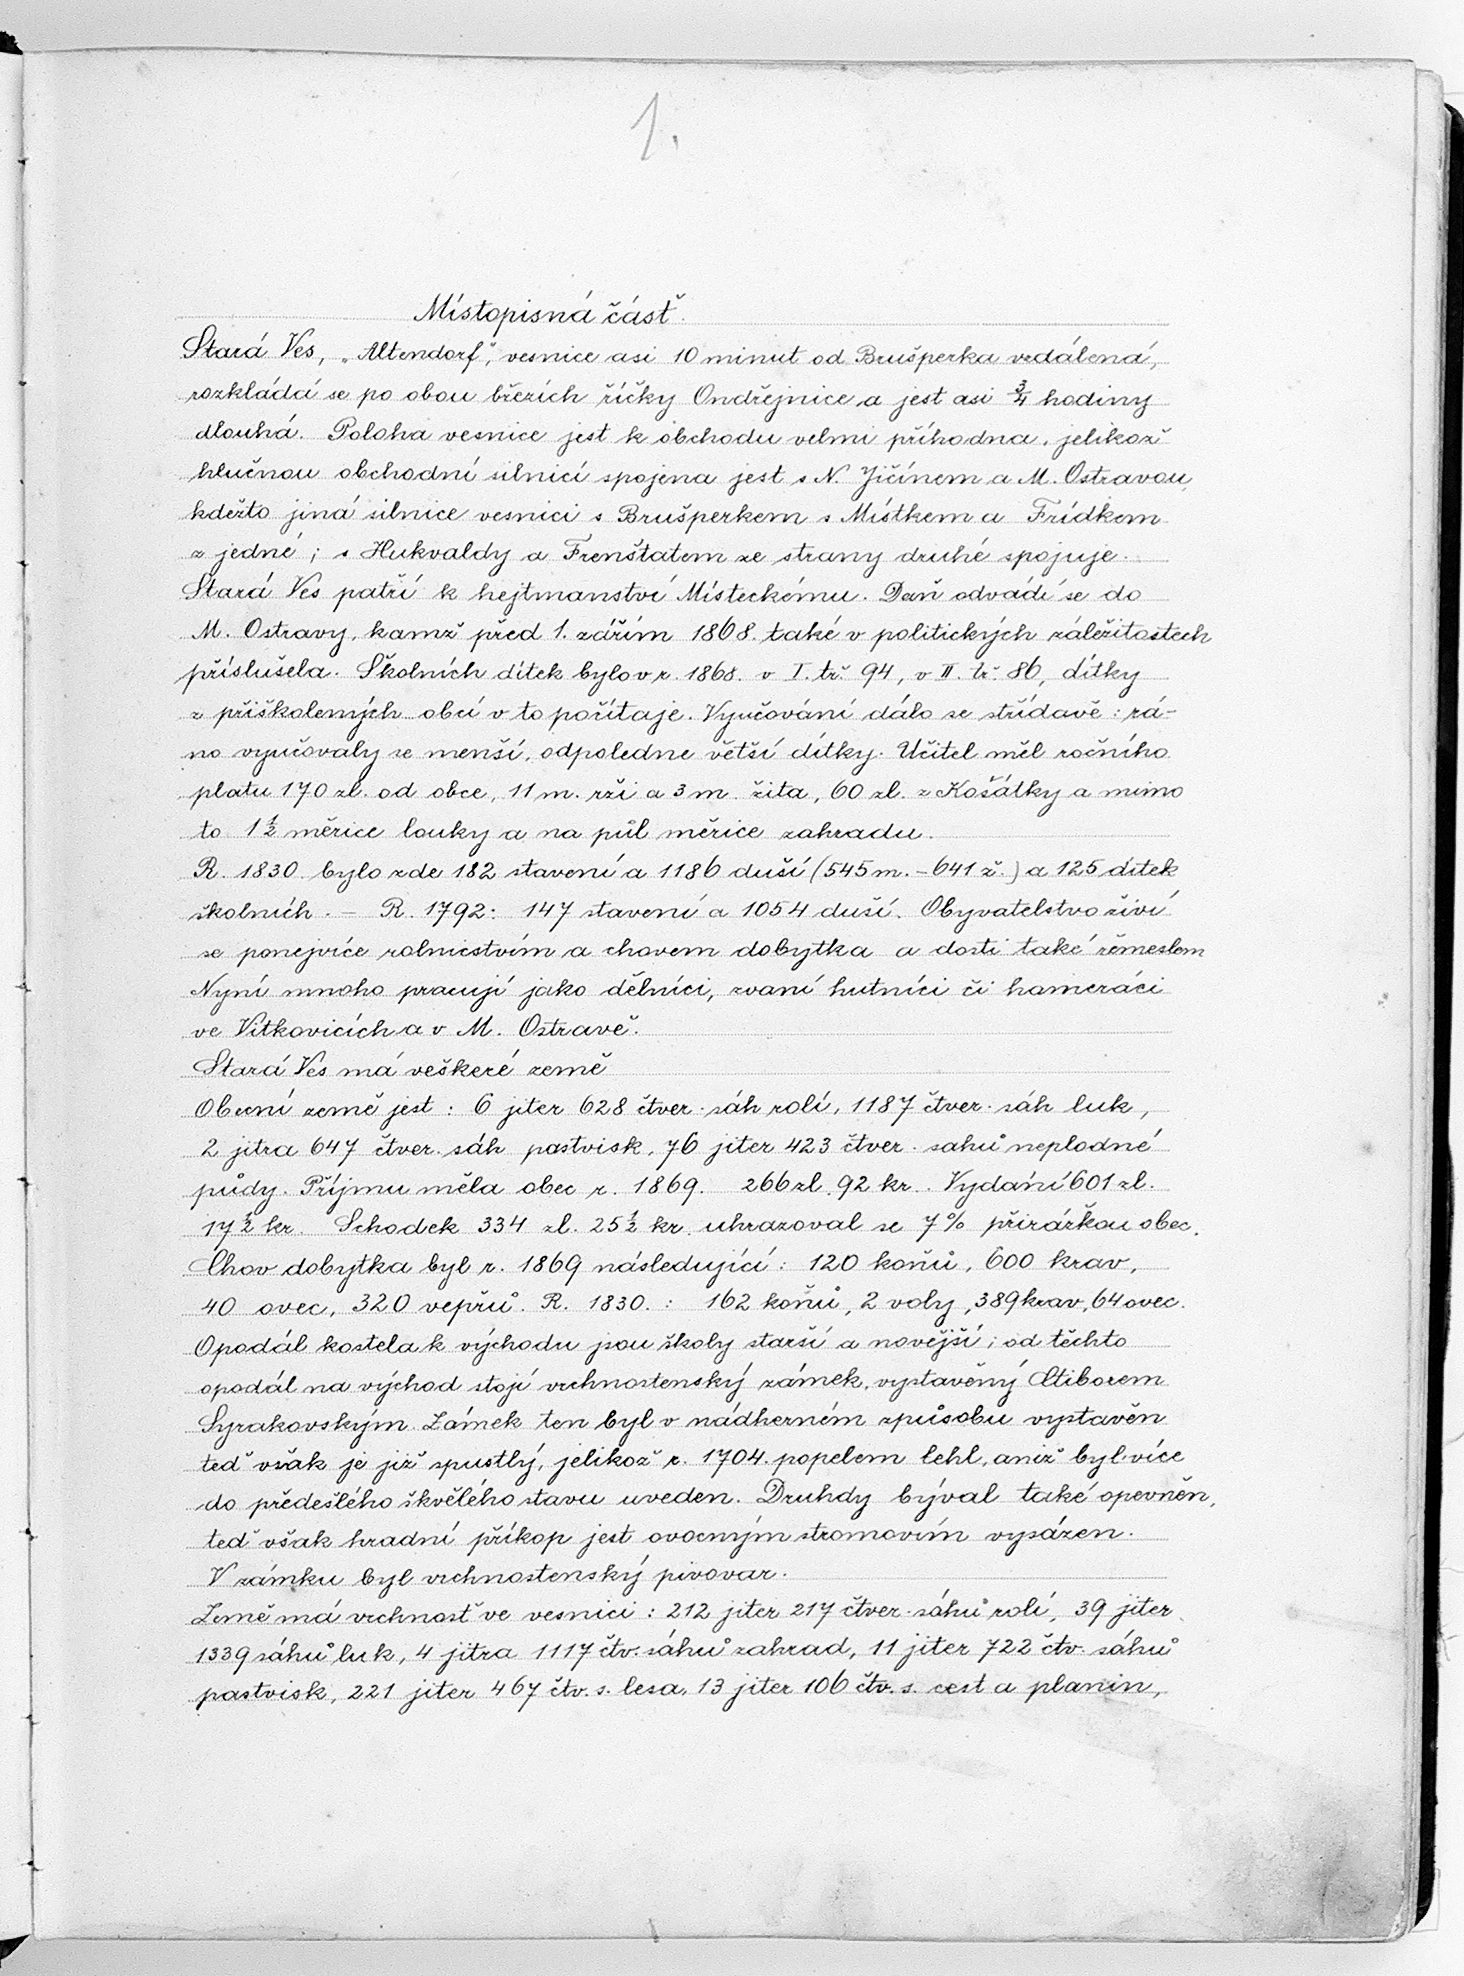 1.
Místopisná část.
Stará Ves, „Altendorf", vesnice asi 10 minut od Brušperka vzdálená,
rozkládá se po obou březích říčky Ondřejnice a jest asi ¾ hodiny
dlouhá. Poloha vesnice jest k obchodu velmi příhodna, jelikož
hlučnou obchodní silnicí spojena jest s N. Jičínem a M. Ostravou,
kdežto jiná silnice vesnici s Brušperkem s Místkem a Frídkem
z jedné; s Hukvaldy a Frenštatem ze strany druhé spojuje.
Stará Ves patří k hejtmanství Místeckému. Daň odvádí se do
M. Ostravy, kamž před 1. zářím 1868. také v politických záležitostech
příslušela. Školních dítek bylo v r. 1868. v I. tř. 94, v II. tř. 86, dítky
z přiškolených obcí v to počítaje. Vyučování dálo se střídavě: rá-
no vyučovaly se menší, odpoledne větší dítky. Učitel měl ročního
platu 170 zl. od obce, 11 m. rži a 3 m. žita, 60 zl. z Košátky a mimo
to 1½ měřice louky a na půl měřice zahradu.
R. 1830 bylo zde 182 stavení a 1186 duší (545 m. - 641 ž.) a 125 dítek
školních. - R. 1792: 147 stavení a 1054 duší. Obyvatelstvo živí
se ponejvíce rolnictvím a chovem dobytka a dosti také řemeslem
Nyní mnoho pracují jako dělníci, zvaní hutníci či hameráci
ve Vitkovicích a v M. Ostravě.
Stará Ves má veškeré země
Obecní země jest: 6 jiter 628 čtver. sáh rolí, 1187 čtver. sáh luk,
2 jitra 647 čtver. sáh pastvisk, 76 jiter 423 čtver. sahů neplodné
půdy. Příjmu měla obec r. 1869. 266 zl. 92 kr. Vydání 601 zl.
17½ kr. Schodek 334 zl. 25½ kr. uhrazoval se 7% přirážkou obec.
Chov dobytka byl r. 1869 následující: 120 koňů, 600 krav,
40 ovec, 320 vepřů. R. 1830.: 162 koňů, 2 voly, 389 krav, 64 ovec.
Opodál kostela k východu jsou školy starší a novější; od těchto
opodál na východ stojí vrchnostenský zámek, vystavěný Ctiborem
Syrakovským. Zámek ten byl v nádherném způsobu vystavěn
teď však je již spustlý, jelikož r. 1704. popelem lehl, aniž byl více
do předešlého škvělého stavu uveden. Druhdy býval také opevněn,
teď však hradní příkop jest ovocným stromovím vysázen.
V zámku byl vrchnostenský pivovar.
Země má vrchnosť ve vesnici: 212 jiter 217 čtver. sáhů rolí, 39 jiter
1339 sáhů luk, 4 jitra 1117 čtv. sáhů zahrad, 11 jiter 722 čtv. sáhů
pastvisk, 221 jiter 467 čtv. s. lesa, 13 jiter 106 čtv. s. cest a planin,